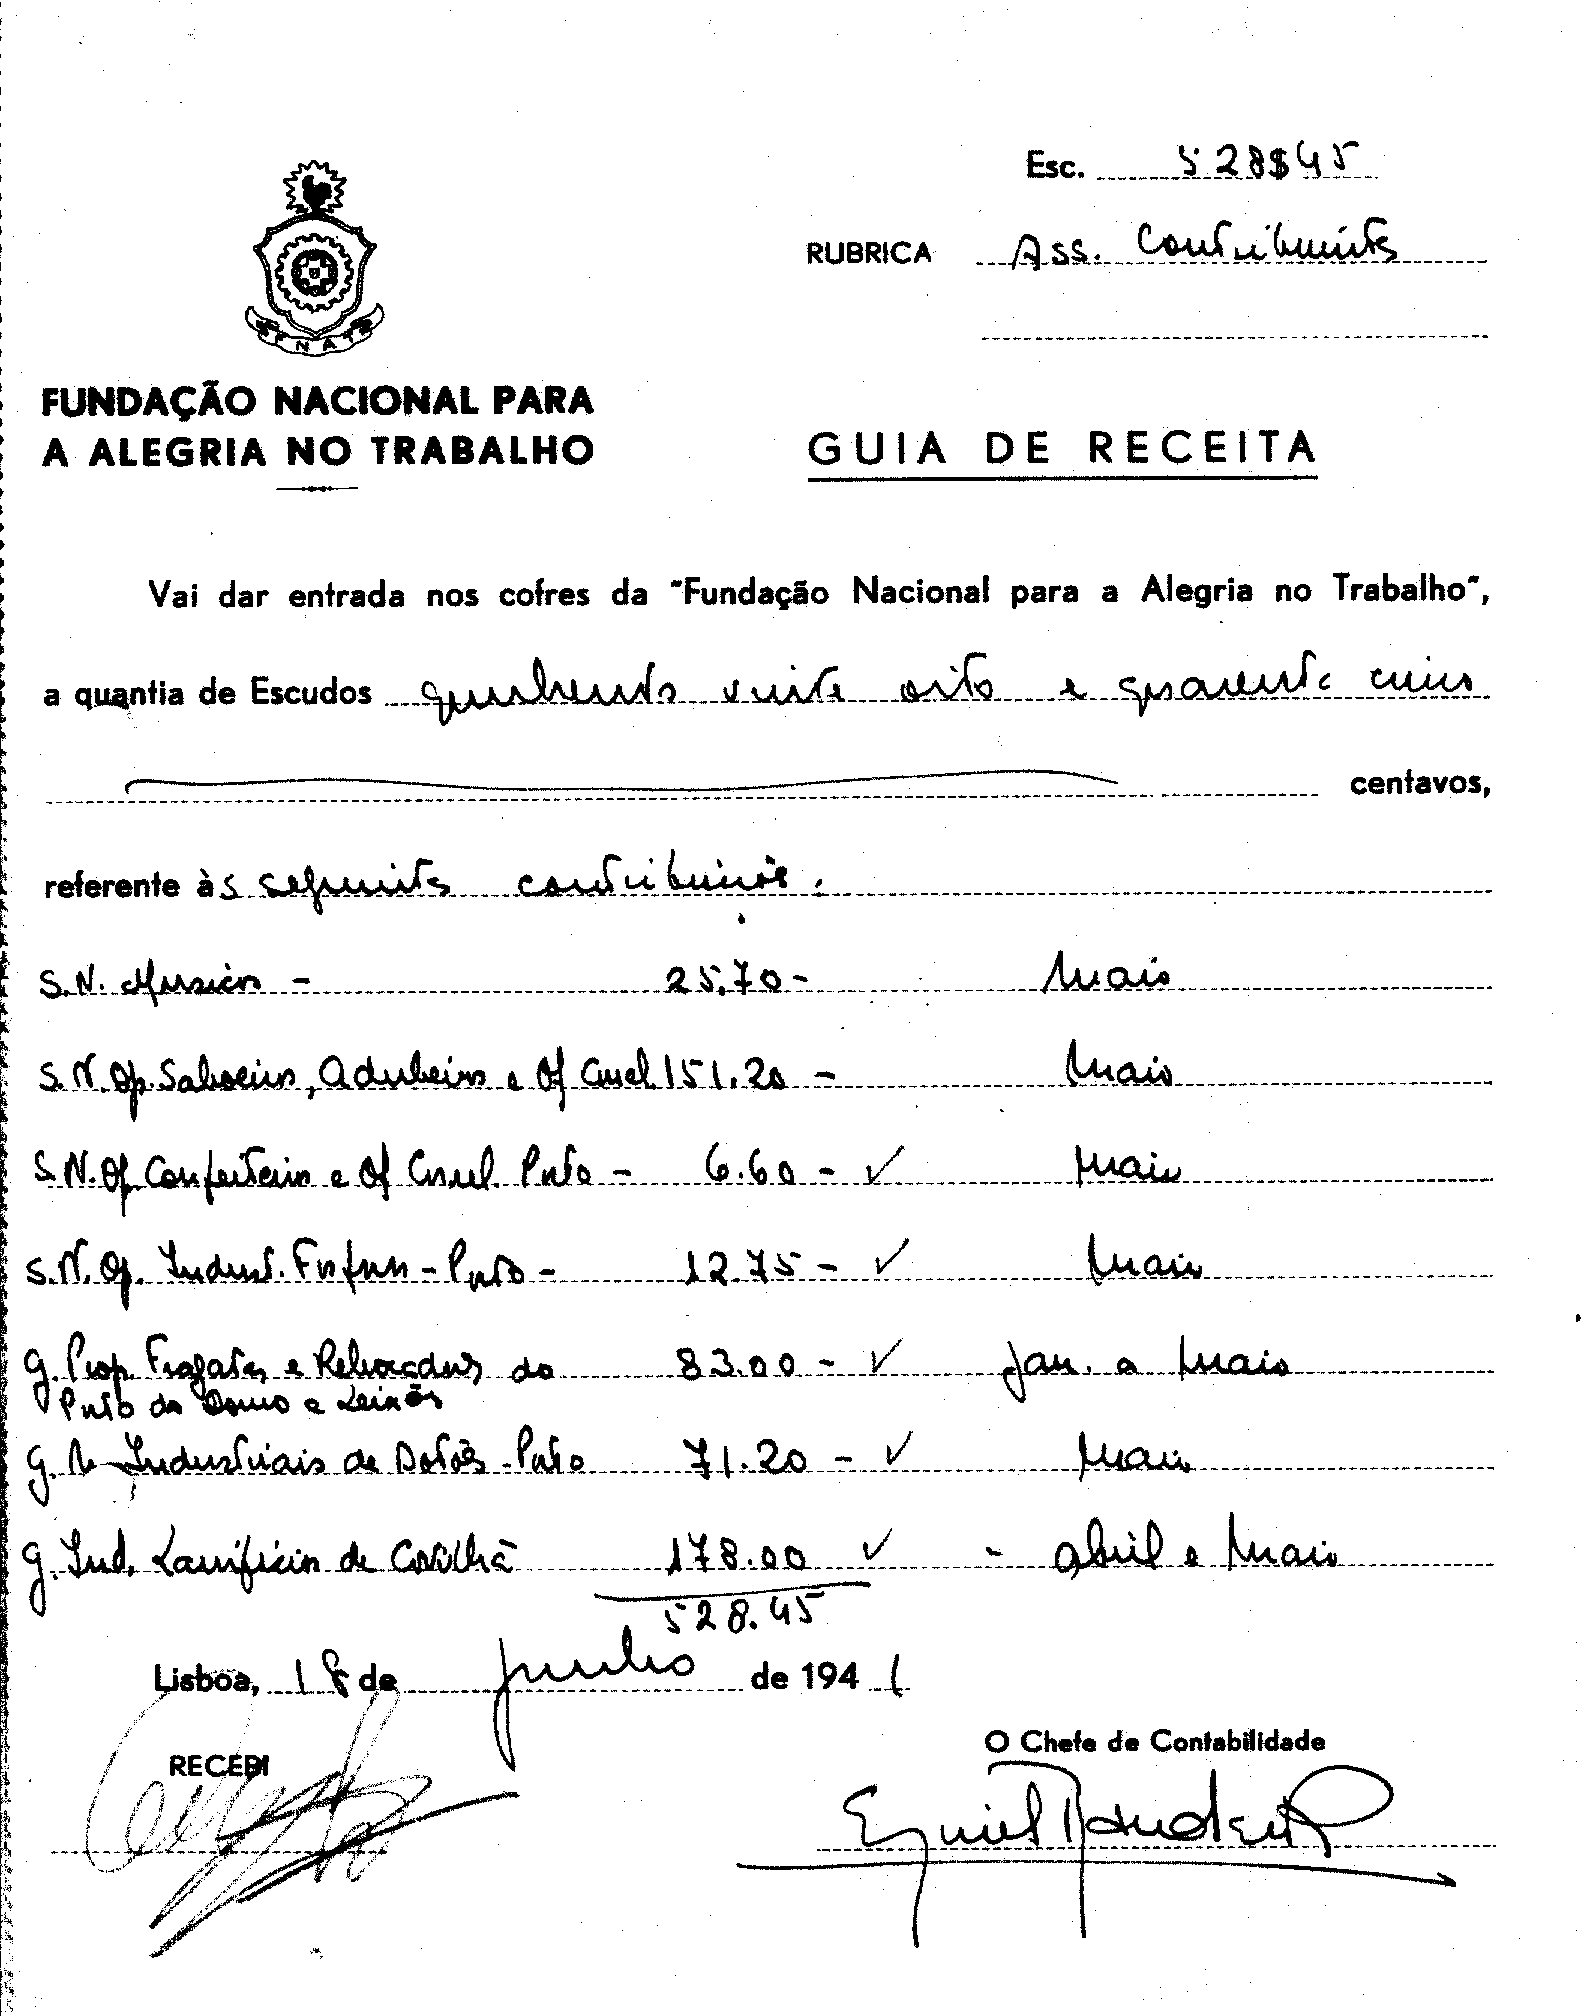 Esc. 528$45
RUBRICA Ass. Contribuintes
FNAT
FUNDAÇÃO NACIONAL PARA
A ALEGRIA NO TRABALHO
GUIA DE RECEITA
Vai dar entrada nos cofres da "Fundação Nacional para a Alegria no Trabalho",
a quantia de Escudos quinhentos vinte oito e quarenta cinco
centavos,
referente às seguintes contribuições:
S.N. Musicos - 25.70 - Maio
S.N. Op. Saboeiros, Adubeiros e Of 151.20 - Maio
S.N. Op. Confeiteiros e Of Porto - 6.60 - ✓ Maio
S.N. Op. Indust. Fosforos - Porto - 12.75 - ✓ Maio
G. Prop. Fragatas e Rebocadores do 83.00 - ✓ Jan. a Maio
Porto do Douro e Leixões
G. Industriais de Porto 71.20 - ✓ Maio
G. Ind. Lanificios de Covilhã 178.00 ✓ - Abril e Maio
528.45
Lisboa, 18 de Junho de 1941
RECEBI
O Chefe de Contabilidade